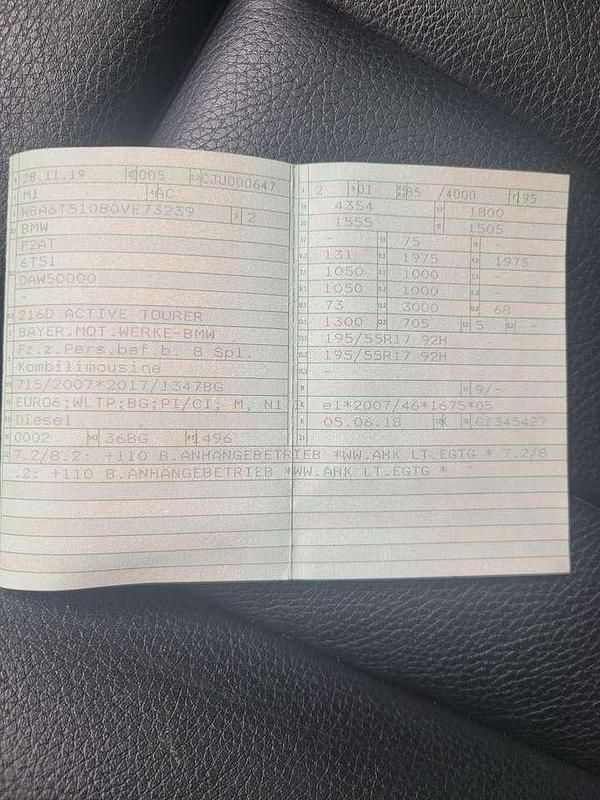 28.11.19 0005 CJU000647
M1 AC
WBA6T51080VE73239 2
BMW
F2AT
6T51
DAW50000
-
216D ACTIVE TOURER
BAYER.MOT.WERKE-BMW
Fz.z.Pers.bef.b. 8 Spl.
Kombilimousine
715/2007*2017/1347BG
EURO6;WLTP;BG;PI/CI; M, N1 I
Diesel
0002 36BG 1496
7.2/8.2: +110 B.ANHÄNGEBETRIEB *WW.AHK LT.EGTG * 7.2/8
.2: +110 B.ANHÄNGEBETRIEB *WW.AHK LT.EGTG *
2 01 85 /4000 195
4354 1800
1555 1505
- 75 -
131 1975 1975
1050 1000 -
1050 1000 -
73 3000 68
1300 705 5 -
195/55R17 92H
195/55R17 92H
-
9/-
e1*2007/46*1675*05
05.06.18 K GZ345427